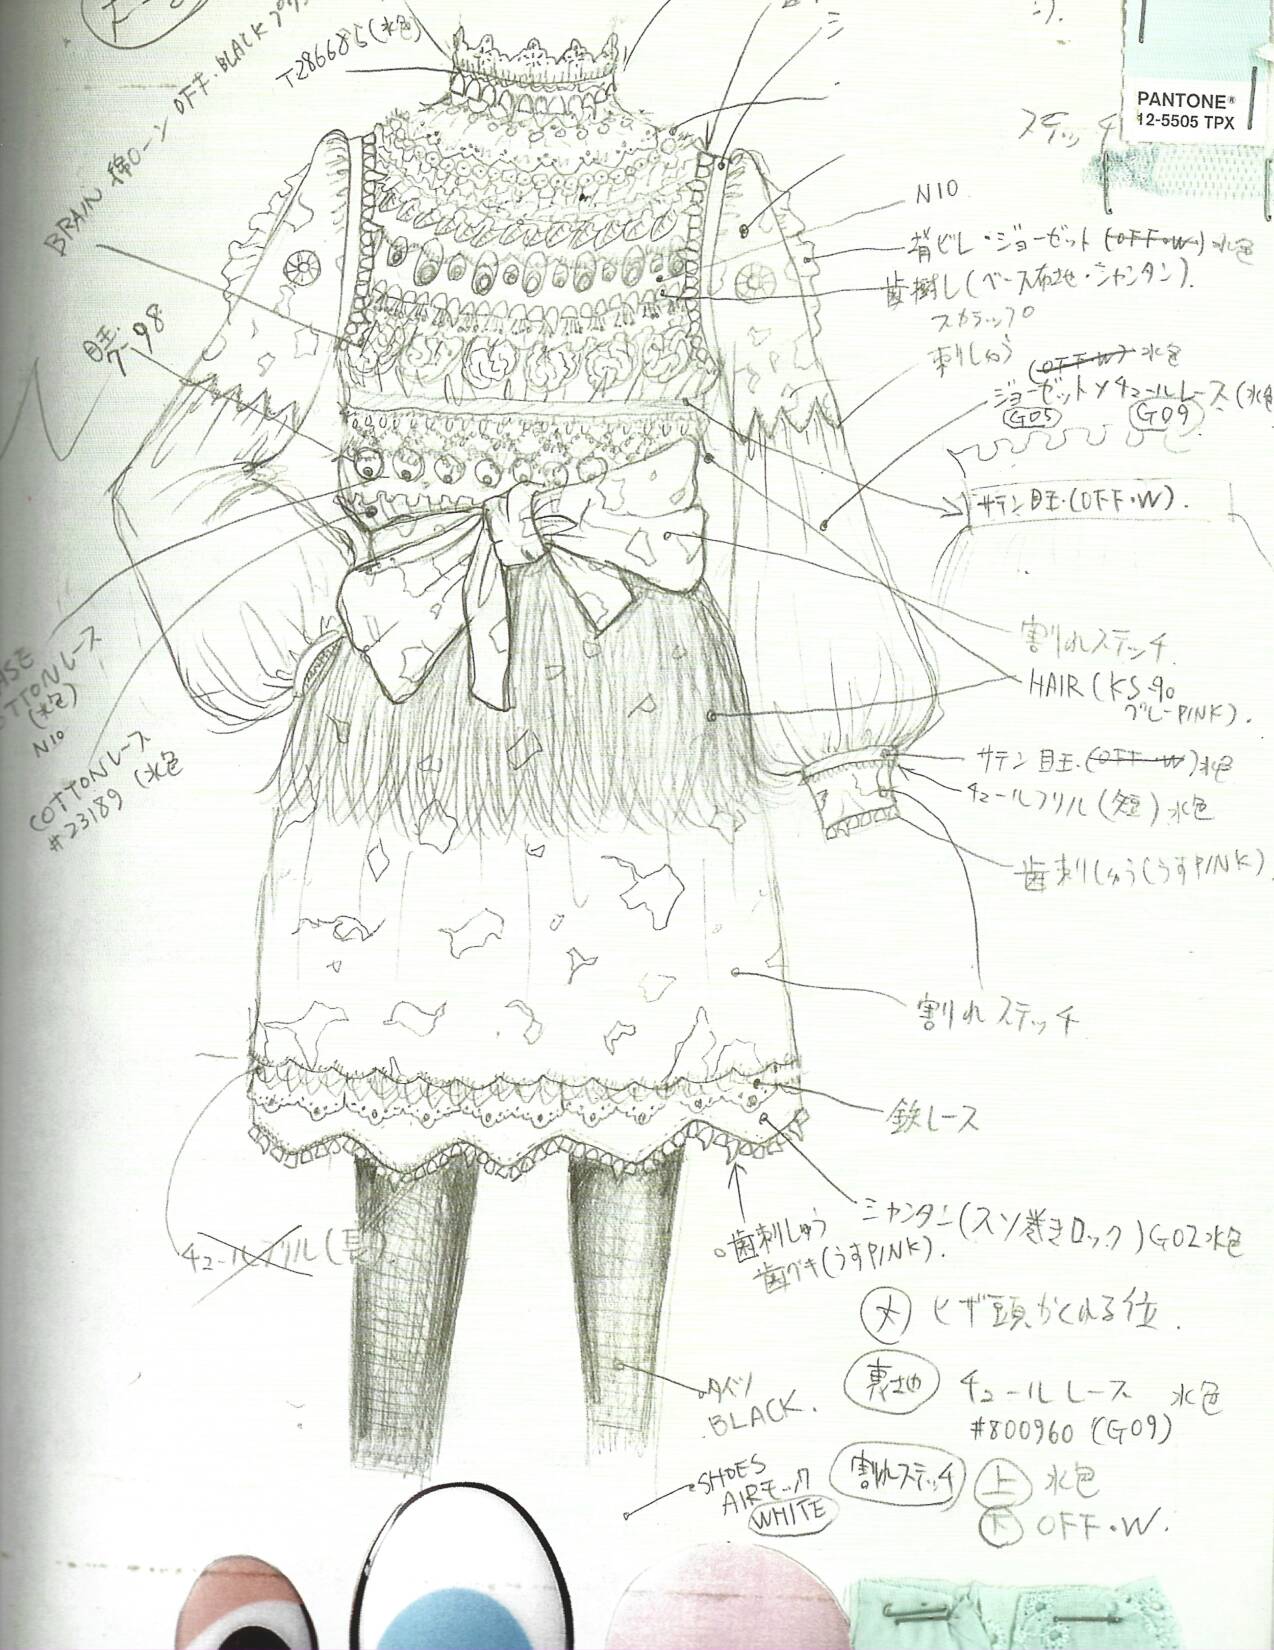 OFF.BLACK
T286685(水色)
BRAIN 綿ローン
PANTONE®
12-5505 TPX
ステッチ
N10
背ビレ・ジョーゼット(OFF・W)水色
歯樹し(ベース布地・シャンタン).
スカラップ
刺しゅう
(OFF・W)水色
ジョーゼット チュールレース(水色
G05 G09
目玉.
7-98
サテン目玉.(OFF・W).
割れステッチ.
HAIR(KS-90
グレーPINK).
COTTONレース
(水色)
N10
COTTONレース
#23189(水色
サテン目玉.(OFF・W)水色
チュールフリル(短)水色
歯刺しゅう(うすPINK)
割れステッチ
鉄レース
シャンタン(スソ巻きロック)G02水色
チュールフリル(長).
歯刺しゅう
歯グキ(うすPINK).
丈 ヒザ頭かくれる位.
裏地 チュールレース 水色
#800960(G09)
タイツ
BLACK.
SHOES
AIRモック
WHITE
割れステッチ 上 水色
下 OFF.W.